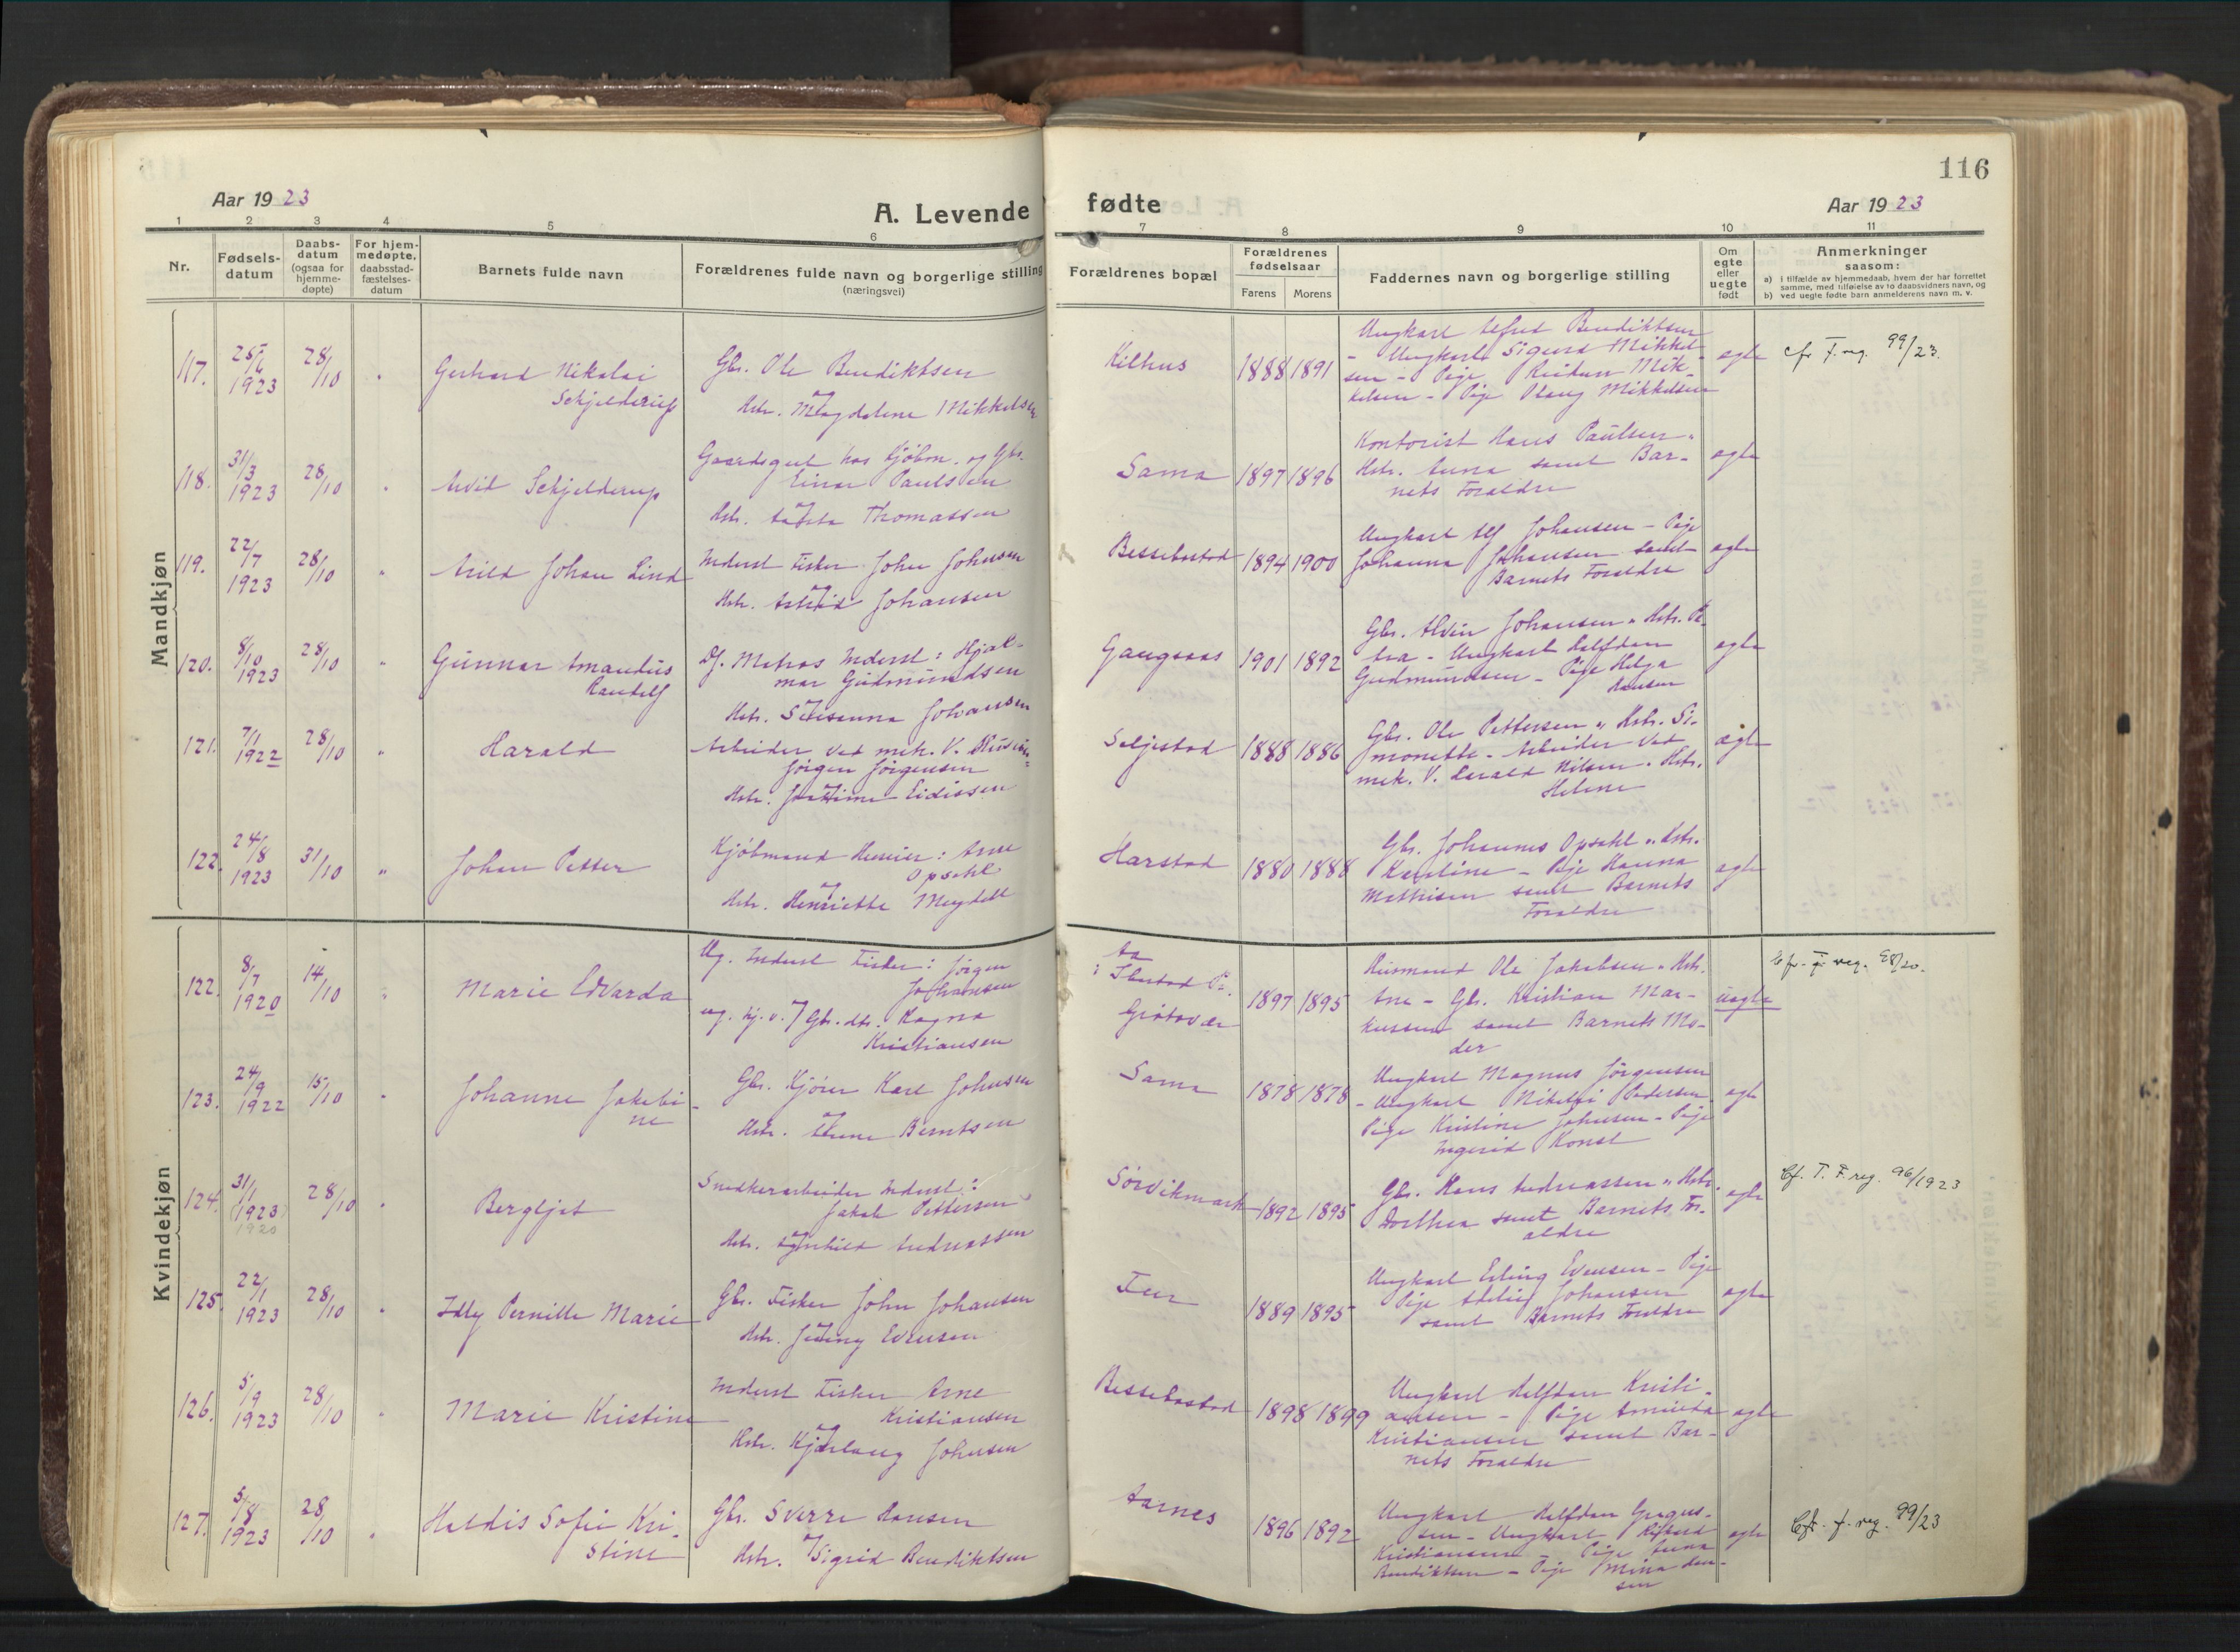 116
Aar 1923
A. Levende fødte
Aar 1923
1 2 3 4 5 6 7 8 9 10 11
Nr.
Fødsels-
datum
Daabs-
datum
(ogsaa for
hjemme-
døpte)
For hjem-
medøpte,
daabsstad-
fæstelses-
datum
Barnets fulde navn
Forældrenes fulde navn og borgerlige stilling
(næringsvei)
Forældrenes bopæl
Forældrenes
fødselsaar
Farens Morens
Faddernes navn og borgerlige stilling
Om
egte
eller
uegte
født
Anmerkninger
saasom:
a) i tilfælde av hjemmedaab, hvem der har forrettet
samme, med tilføielse av to daabsvidners navn, og
b) ved uegte fødte barn anmelderens navn m. v.
Mandkjøn
117.
25/6
1923
28/10
"
Gerhard Nikolai
Schjelderup
Gbr. Ole Bendiktsen
Hstr. Magdalene Mikkelsen
Kilhus
1888 1891
Ungkarl Alfred Bendiktsen
- Ungkarl Sigurd Mikkel-
sen - Pige Reidun Mik-
kelsen - Pige Olaug Mikkelsen
egte
cfr F.reg. 99/23.
118.
31/3
1923
28/10
"
Arvid Schjelderup
Gaardsgut hos Kjøbm. og Gbr.
Einar Paulsen
Hstr. Thomassen
Sama
1897 1896
Kontorist Hans Paulsen "
Hstr. Anna samt Bar-
nets Foraldre
egte
119.
22/7
1923
28/10
"
Arild Johan Lind
Inderst Fisker John Johnsen
Hstr. Johansen
Bessebostad
1894 1900
Ungkarl Alf Johansen - Pige
Johanna Johansen samt
Barnets Foraldre
egte
120.
8/10
1923
28/10
"
Gunnar Amandus
Randolf
Df. Matros Inderst: Hjal-
mar Gudmundsen
Hstr. Susanna Johansen
Gangsaas
1901 1892
Gbr. Alvin Johansen " Hstr. Pe-
tra - Ungkarl Halfdan
Gudmundsen - Pige Helga
Hansen
egte
121.
7/1
1922
28/10
"
Harald
Arbeider ved mek. V.
Jørgen Jørgensen
Hstr. Eidissen
Seljestad
1888 1886
Gbr. Ole Pettersen " Hstr. Si-
monette - Arbeider ved
mek. V. Harald Nilsen " Hstr.
Helene
egte
122.
24/8
1923
31/10
"
Johan Petter
Kjøbmand Arne
Opsahl
Hstr. Henriette Meydell
Harstad
1880 1888
Gbr. Johannes Opsahl " Hstr.
Karoline - Pige Hanna
Mathisen samt Barnets
Foraldre
egte
Kvindekjøn
122.
8/7
1920
14/10
"
Marie Edvarda
Ug. Inderst Fisker: Jørgen
Johansen
ug. Gbr.dtr. Ragna
Kristiansen
Ibestad
Grøtavær
1897 1895
Husmand Ole Jakobsen " Hstr.
Ane - Gbr. Kristian Mar-
kussen samt Barnets Mo-
der
uegte
Cfr. F. reg. 58/20.
123.
24/9
1922
15/10
"
Johanne Jakobi-
ne
Gbr. Kjører Karl Johnsen
Hstr. Berntsen
Sama
1878 1878
Ungkarl Magnus Jørgensen
- Ungkarl Nikolai Pedersen
Pige Kristine Johnsen - Pige
Ingerid Konst
egte
124.
31/1
1923
1920
28/10
"
Bergljot
Snedkerarbeider Inderst:
Jakob Pettersen
Hstr. Andreassen
Sørvikmark
1892 1895
Gbr. Hans Andreassen " Hstr.
Dorthea samt Barnets For-
aldre
egte
Cf. T. F.reg. 96/1923
125.
22/1
1923
28/10
"
Idly Pernille Marie
Gbr. Fisker John Johansen
Hstr. Jenny Evensen
1889 1895
Ungkarl Erling Evensen - Pige
Pige Johansen
samt Barnets Foreldre
egte
126.
5/9
1923
28/10
"
Marie Kristine
Inderst Fisker Arne
Kristiansen
Hstr. Kjerlaug Johnsen
Bessebostad
1898 1899
Ungkarl Halfdan Kristi-
ansen - Pige Amanda
Kristiansen samt Bar-
nets Foraldre
egte
127.
5/8
1923
28/10
"
Haldis Sofie Kri-
stine
Gbr. Sverre Hansen
Hstr. Sigrid Bendiktsen
Aarnes
1896 1892
Ungkarl Halfdan Gregus-
sen - Ungkarl Rikard
Kristiansen - Pige Anna
Bendiktsen - Pige Mina Han-
sen
egte
Cfr. f. reg. 99/23